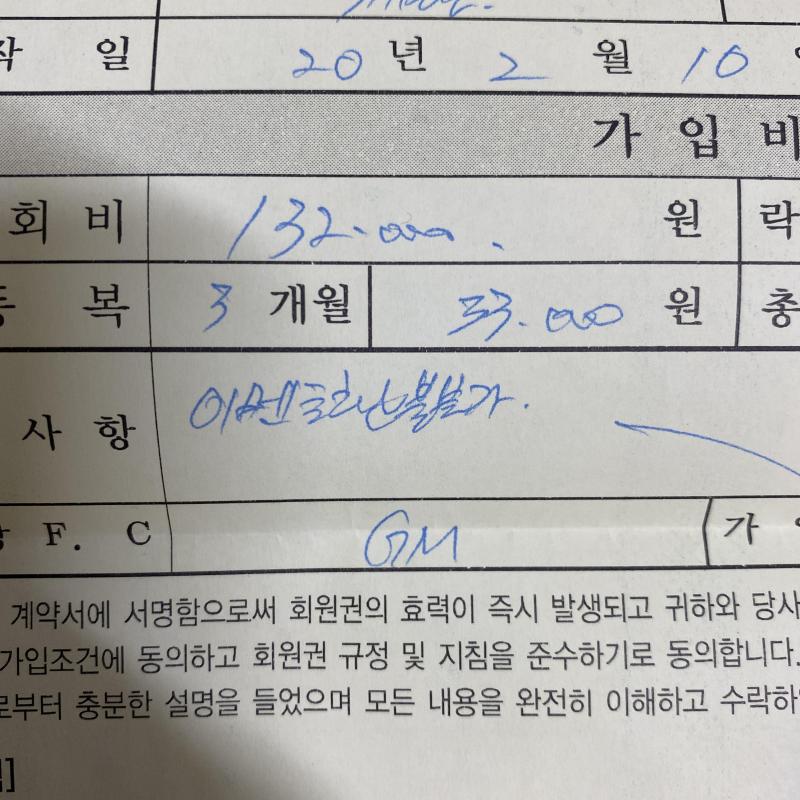 작 일 20 년 2 월 10
가 입 비
회 비 132.000. 원 락
동 복 3 개월 33.000 원 총
사 항 이벤트
F. C GM 가
계약서에 서명함으로써 회원권의 효력이 즉시 발생되고 귀하와 당사
가입조건에 동의하고 회원권 규정 및 지침을 준수하기로 동의합니다.
로부터 충분한 설명을 들었으며 모든 내용을 완전히 이해하고 수락하